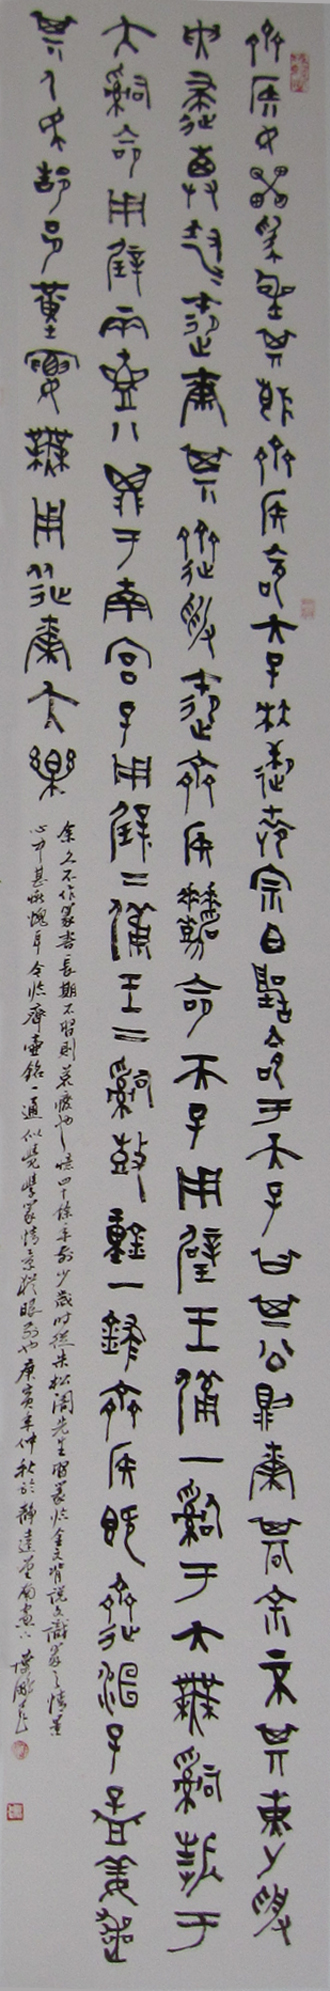 齊侯女雷喪其齊侯命大子乘遽宗白聽命于天子曰期則爾期余不其事女受
遄傳御爾其受御齊侯拜嘉命天子用璧玉備一嗣于大無嗣誓于
大嗣命用璧兩壺八鼎于南宮子用璧二備玉二嗣鼓鐘一肆齊侯既洹子孟姜喪
其人民都邑堇寠無用從爾大樂
余久不作篆書長期不習則荒廢也憶四十餘年前少歲時從朱松濤先生習篆臨金文背說文識篆之情景
心中甚慚愧耳今臨齊壺銘一通似覺學篆情景猶眼前也庚寅年仲秋於靜遠堂南窗下